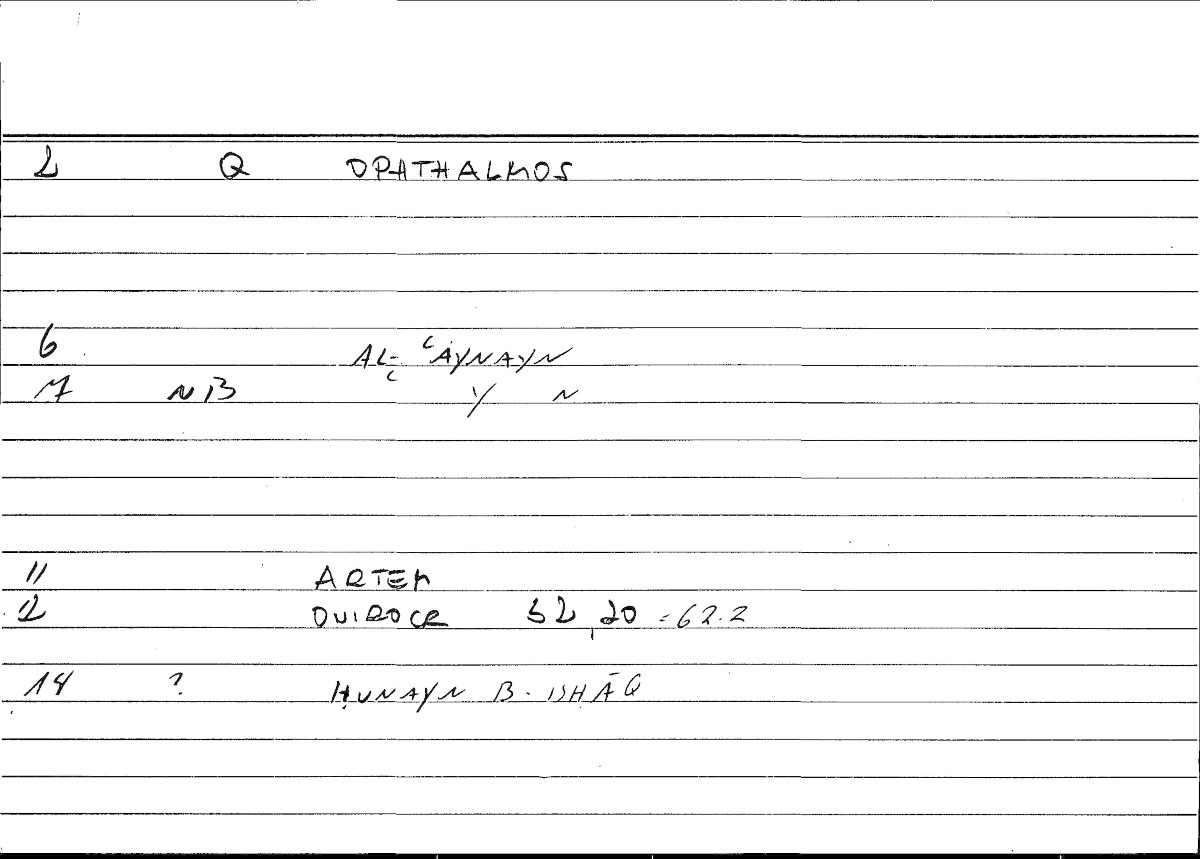 2 Q OPHTHALMOS
6 AL- ʿAYNAYN
7 NB Y N
11 ARTEM
12 QUIROCR 62,20 = 62.2
14 ? ḤUNAYN B. ISḤĀQ